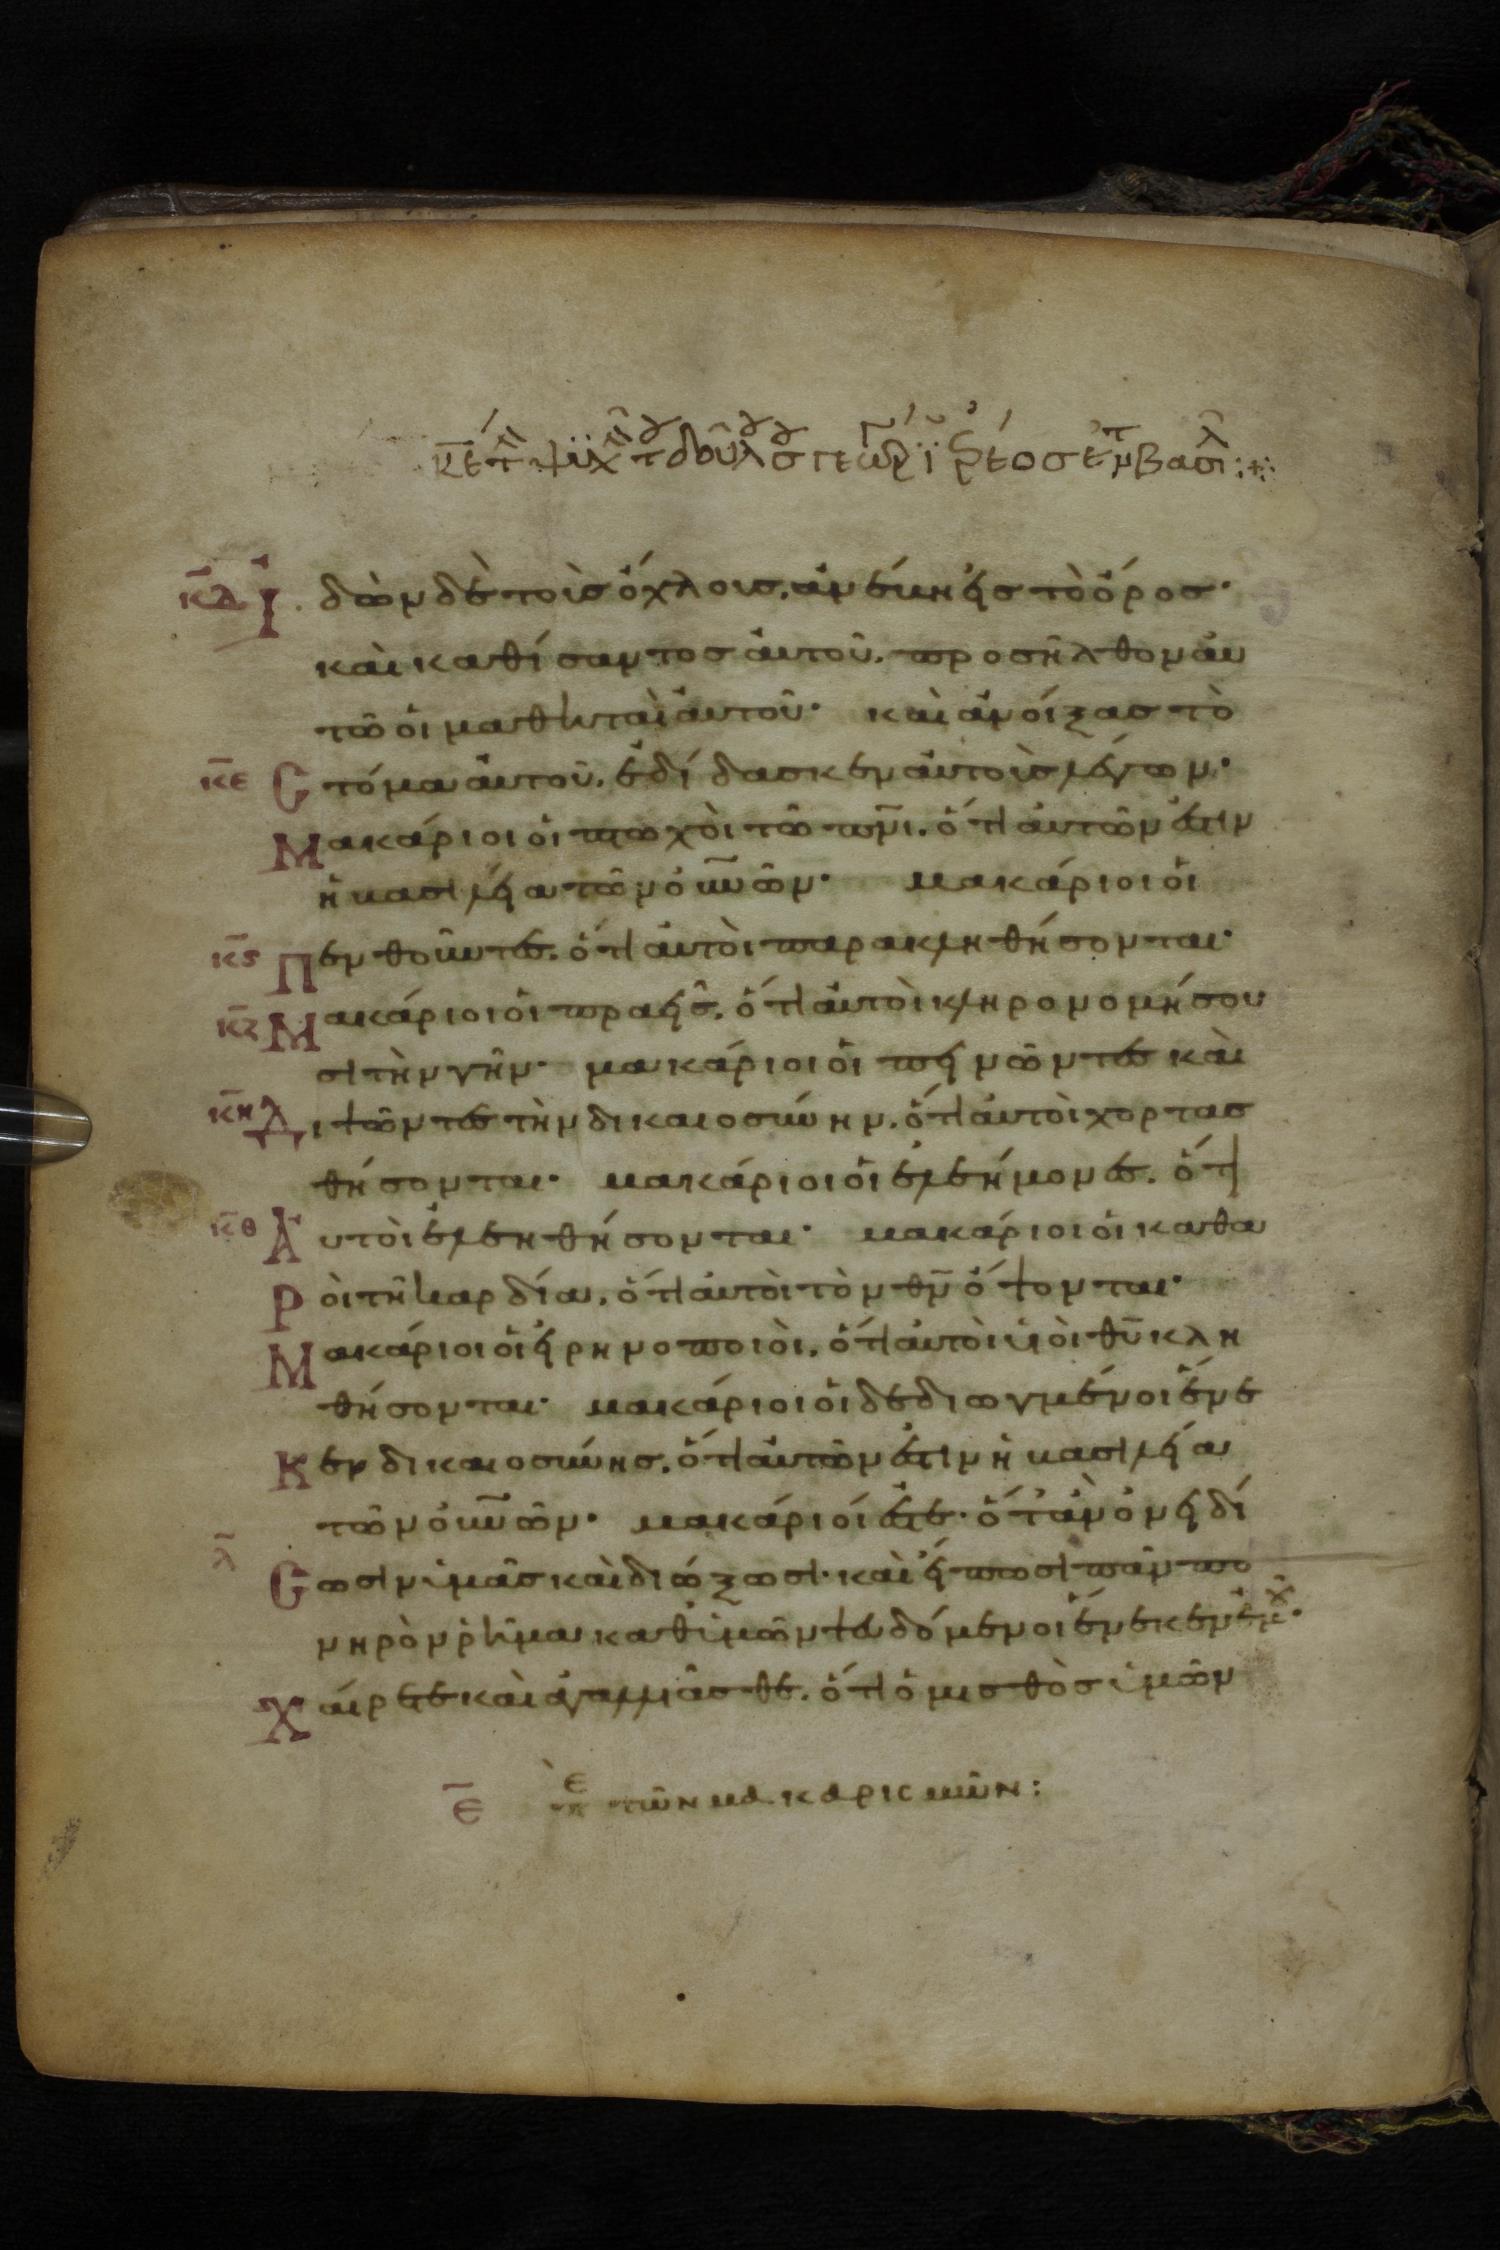 κ̅δ̅ Ἰδὼν δὲ τοὶσ ὄχλουσ. ἀνέβη εἰσ τὸ ὄροσ·
καὶ καθίσαντοσ ἀυτοῦ. προσῆλθον ἀυ
τῶ ὁι μαθηταὶ ἀυτοῦ· καὶ ἀνοίξασ τὸ
κ̅ε̅ Στόμα ἀυτοῦ. ἐδίδασκεν ἀυτοὺσ λέγων·
Μακάριοι ὁι πτωχοὶ τῶ π̅ν̅ι. ὅτι ἀυτῶν ἐστιν
ἡ βασιλεία τῶν ὀυ̅ν̅ῶν· μακάριοι ὁι
κ̅ς̅ Πενθοῦντεσ. ὅτι ἀυτοὶ παρακληθήσονται·
κ̅ζ̅ Μακάριοι ὁι πραεῖσ. ὅτι ἀυτοὶ κληρονομήσου
σι τὴν γῆν· μακάριοι ὁι πεινῶντεσ καὶ
κ̅η̅ Διψῶντεσ τὴν δικαιοσύνην. ὅτι ἀυτοὶ χορτασ
θήσονται· μακάριοι ὁι ἐλεήμονεσ. ὅτι
κ̅θ̅ Ἀυτοὶ ἐλεηθήσονται· μακάριοι ὁι καθα
Ροὶ τῆ καρδία. ὅτι ἀυτοὶ τὸν θ̅ν̅ ὄψονται·
Μακάριοι ὁι εἰρηνοποιοὶ. ὅτι ἀυτοὶ ὑιοὶ θ̅υ̅ κλη
θήσονται· μακάριοι ὁι δεδιωγμένοι ἕνε
Κεν δικαιοσύνησ. ὅτι ἀυτῶν ἐστιν ἡ βασιλεία
τῶν ὀυ̅ν̅ῶν· μακάριοί ἐστε· ὅτἀν ὀνειδί
λ̅ Σωσιν ὑμᾶσ καὶ διώξωσι· καὶ εἴπωσι πᾶν πο
νηρὸν ῥῆμα καθ ὑμῶν ψευδόμενοι ἕνεκεν ἐμοῦ·
Χαίρετε καὶ ἀγαλλιᾶσθε. ὅτι ὁ μισθὸσ ὑμῶν
ε̅ τῶν μακαρισμῶν: